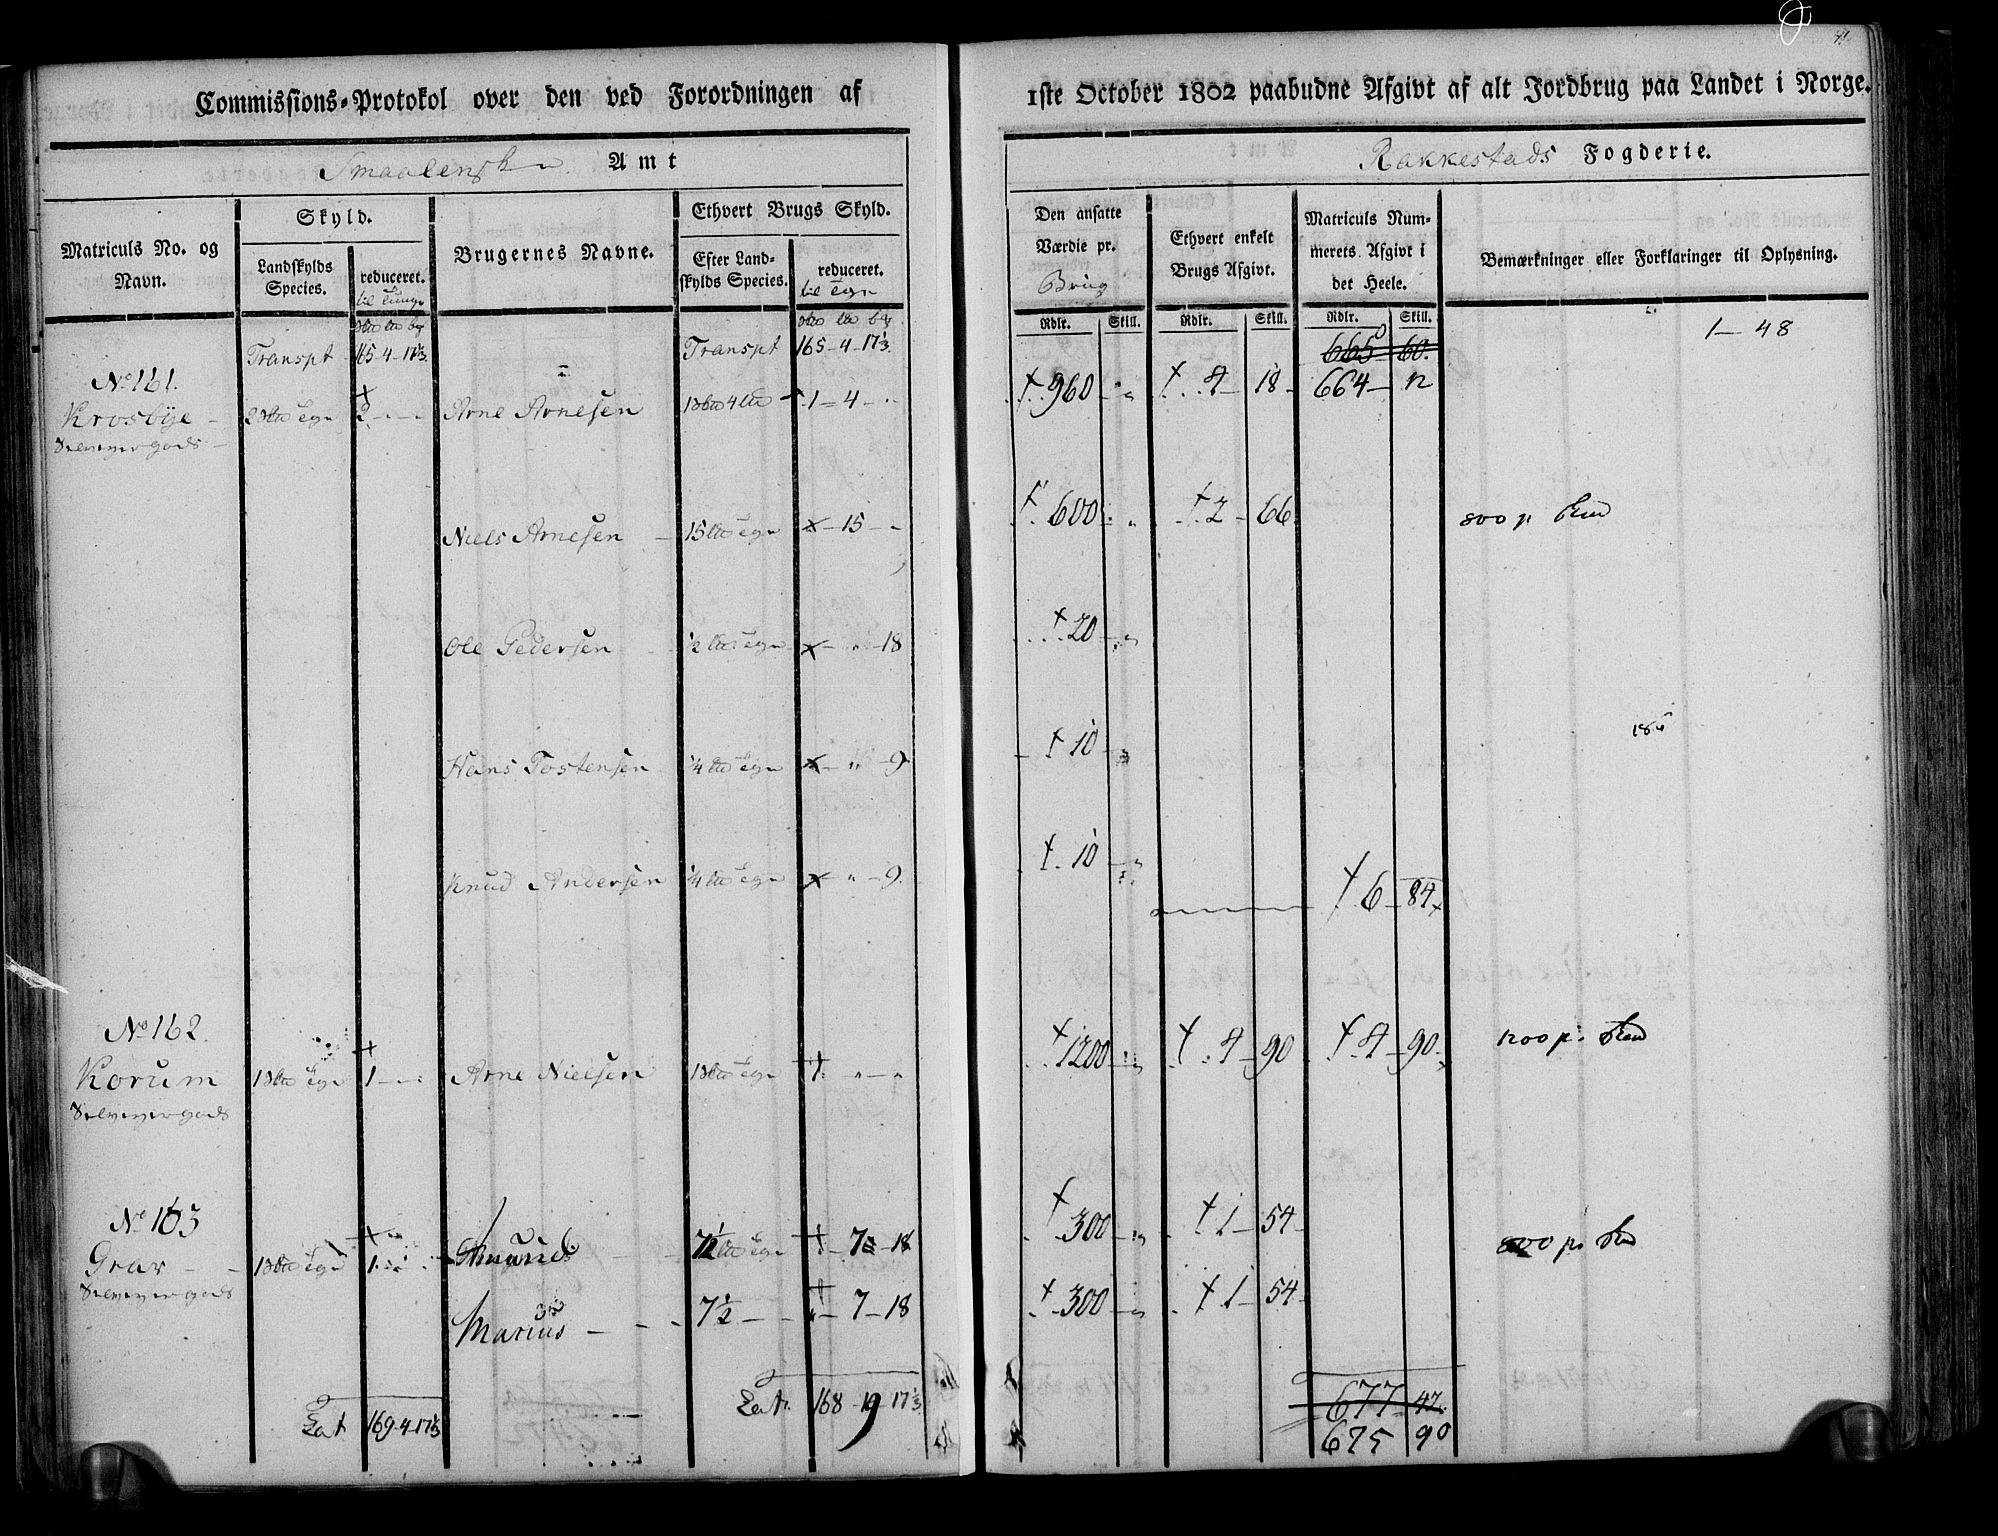 Commissions-Protokol over den ved Forordningen af 1ste October 1802 paabudne Afgivt af alt Jordbrug paa Landet i Norge.
Smaalenske Amt
Rakkestads Fogderie.
Matriculs No. og Navn.
Skyld.
Landskylds Species.
reduceret.
Brugernes Navne.
Ethvert Brugs Skyld.
Efter Landskylds Species.
reduceret.
Den ansatte Værdie pr. Brug
Ethvert enkelt Brugs Afgivt.
Matriculs Nummerets Afgivt i det Heele.
Bemærkninger eller Forklaringer til Oplysning.
Rdlr. Skill. Rdlr. Skill. Rdlr. Skill.
Transpt 165-4-17⅓ Transpt 165-4-17⅓ 665 60 1-48
No 161. 664-12
Krosbye 2 2 Arne Arnesen 1-4 960 4-18
Selveyergods
Niels Arnesen 15 15 600 2-66 800
Ole Pedersen ½ 18 20
Hans Tostensen ¼ 9 10
Knud Andersen ¼ 9 10 6-84
No 162.
Korum 1 1 Arne Nielsen 1 1 1200 4-90 4-90 1200
Selveyergods
No 163
Grav 1 1 7½ 7-18 300 1-54 800
Selveyergods
Marius 7½ 7-18 300 1-54
Lat 169-4-17⅓ Lat. 168-19-17⅓ 677-42
675 90